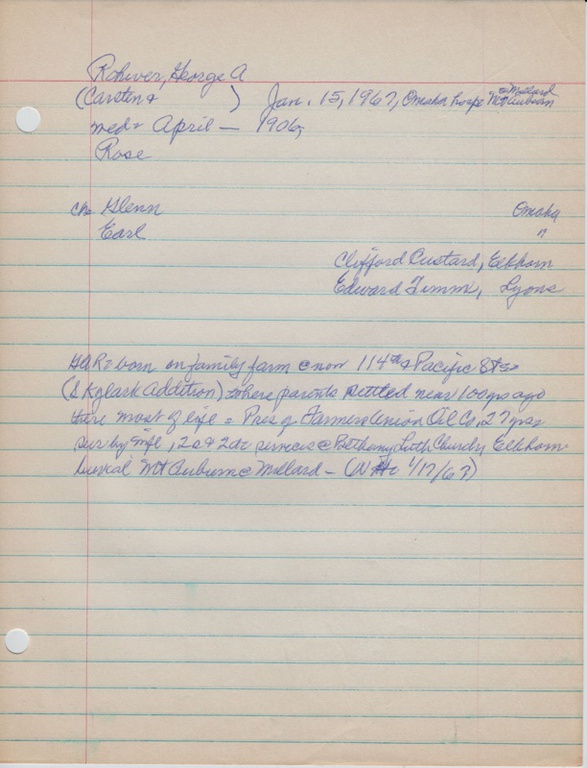 Rohwer, George A
(Carsten & ) Jan. 15, 1967, Omaha hospc Mt Auburn @ Millard
med = April — 1906,
Rose
ch = Glenn Omaha
Earl "
Clifford Custard, Elkhorn
Edward Timm, Lyons
GAR = born on family farm @ now 114th & Pacific Sts =
(Skylark Addition) where parents settled near 100 yrs ago
there most of life = Pres of Farmers Union Oil Co, 27 yrs =
sur by wife, 2s & 2d = services @ Bethany Luth Church, Elkhorn =
burial Mt Auburn @ Millard — (1/17/67)